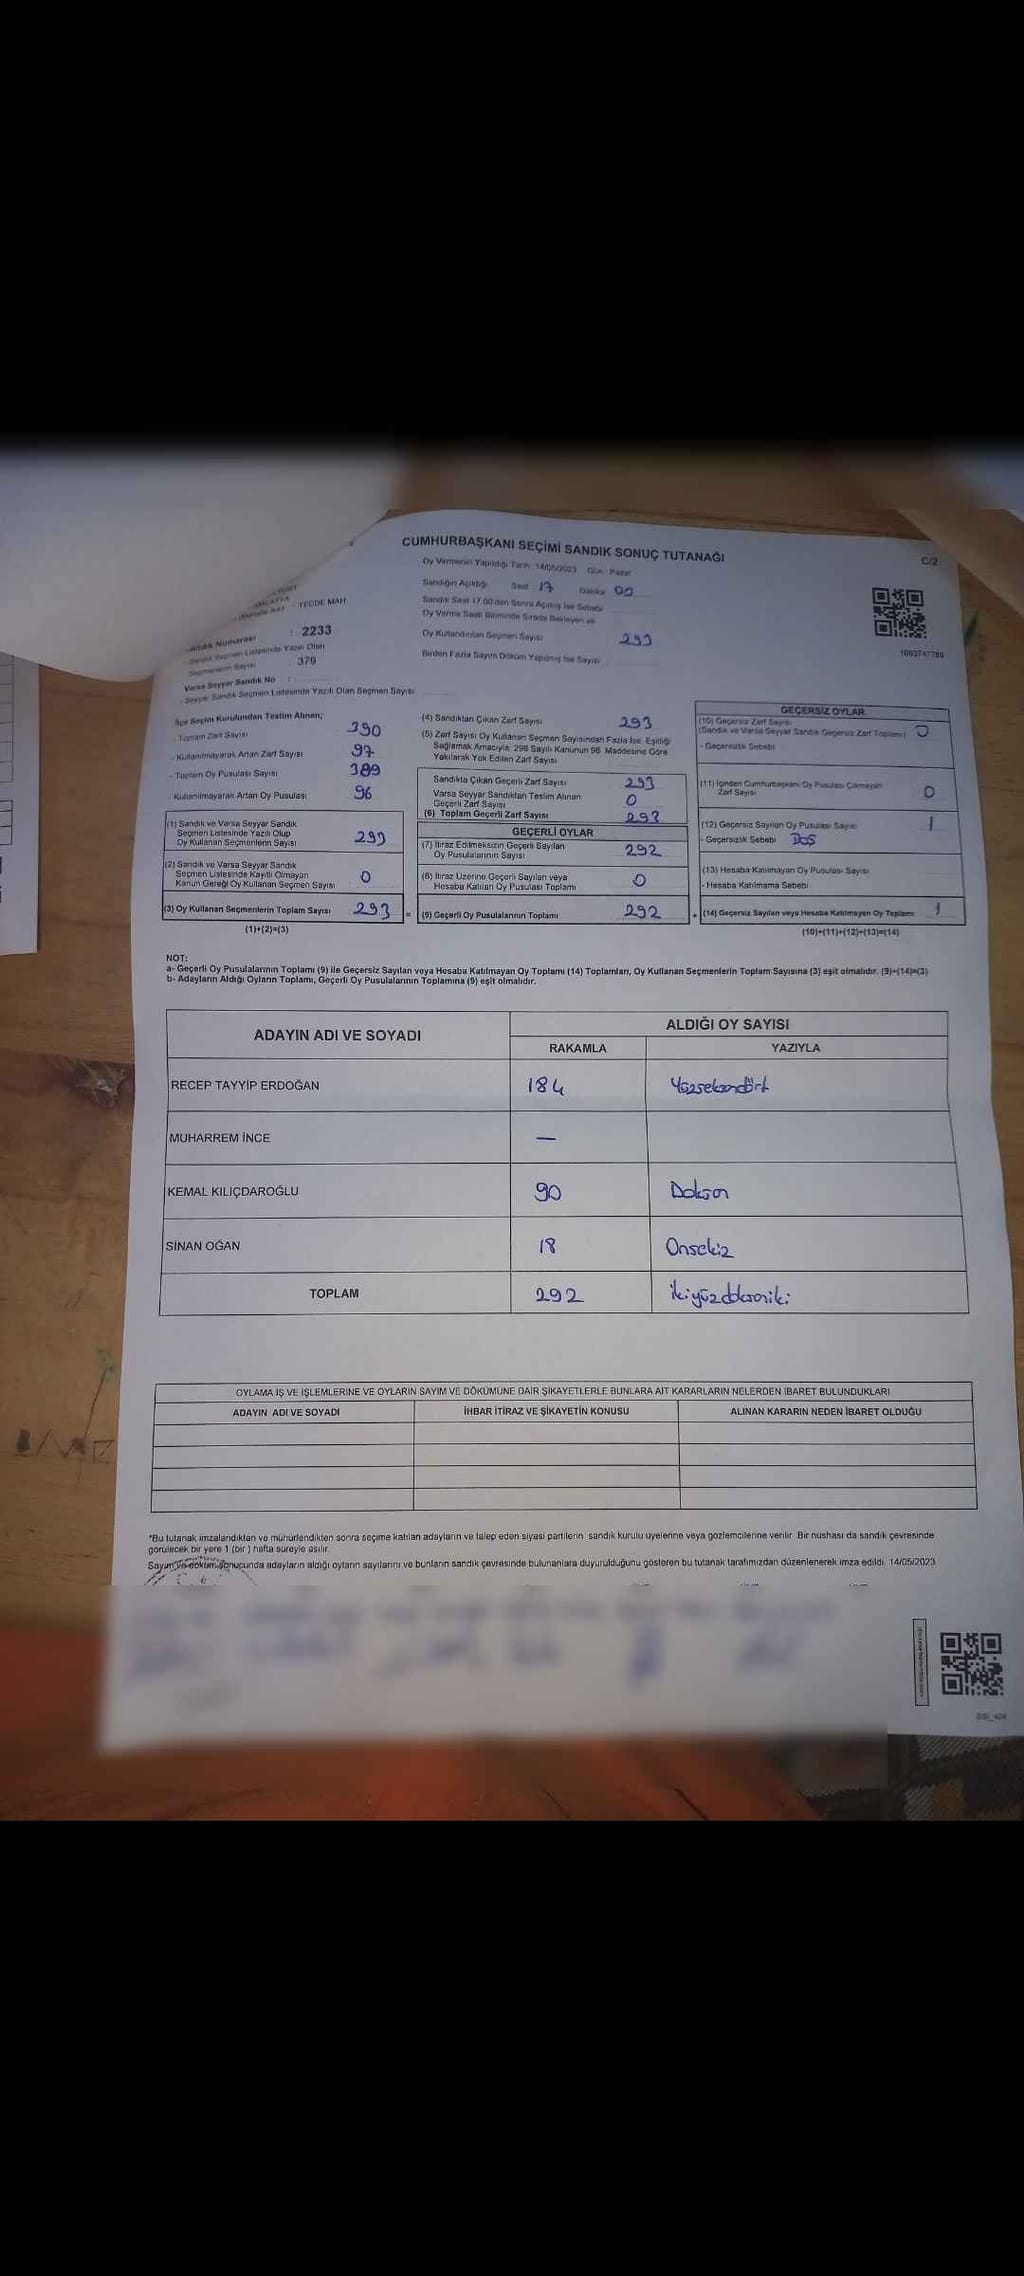 CUMHURBAŞKANI SEÇİMİ SANDIK SONUÇ TUTANAĞI
C/2
Oy Vermenin Yapıldığı Tarih : 14/05/2023 Gün : Pazar
Sandığın Açıldığı Saat 17 Dakika 00
Sandık Saat 17.00'den Sonra Açılmış İse Sebebi
Oy Verme Saati Bitiminde Sırada Bekleyen ve
Oy Kullandırılan Seçmen Sayısı 293
Birden Fazla Sayım Döküm Yapılmış İse Sayısı
1093747785
TECDE MAH
Sandık Numarası : 2233
Seçmen Listesinde Yazılı Olan
Seçmenlerin Sayısı : 379
Varsa Seyyar Sandık No :
- Seyyar Sandık Seçmen Listesinde Yazılı Olan Seçmen Sayısı
İlçe Seçim Kurulundan Teslim Alınan;
- Toplam Zarf Sayısı 390
- Kullanılmayarak Artan Zarf Sayısı 97
- Toplam Oy Pusulası Sayısı 389
- Kullanılmayarak Artan Oy Pusulası 96
(1) Sandık ve Varsa Seyyar Sandık
Seçmen Listesinde Yazılı Olup
Oy Kullanan Seçmenlerin Sayısı 293
(2) Sandık ve Varsa Seyyar Sandık
Seçmen Listesinde Kayıtlı Olmayan
Kanun Gereği Oy Kullanan Seçmen Sayısı 0
(3) Oy Kullanan Seçmenlerin Toplam Sayısı 293 =
(1)+(2)=(3)
(4) Sandıktan Çıkan Zarf Sayısı 293
(5) Zarf Sayısı Oy Kullanan Seçmen Sayısından Fazla İse, Eşitliği
Sağlamak Amacıyla, 298 Sayılı Kanunun 98. Maddesine Göre
Yakılarak Yok Edilen Zarf Sayısı
Sandıkta Çıkan Geçerli Zarf Sayısı 293
Varsa Seyyar Sandıktan Teslim Alınan
Geçerli Zarf Sayısı 0
(6) Toplam Geçerli Zarf Sayısı 293
GEÇERLİ OYLAR
(7) İtiraz Edilmeksizin Geçerli Sayılan
Oy Pusulalarının Sayısı 292
(8) İtiraz Üzerine Geçerli Sayılan veya
Hesaba Katılan Oy Pusulası Toplamı 0
(9) Geçerli Oy Pusulalarının Toplamı 292 +
GEÇERSİZ OYLAR
(10) Geçersiz Zarf Sayısı
(Sandık ve Varsa Seyyar Sandık Geçersiz Zarf Toplamı) 0
- Geçersizlik Sebebi
(11) İçinden Cumhurbaşkanı Oy Pusulası Çıkmayan
Zarf Sayısı 0
(12) Geçersiz Sayılan Oy Pusulası Sayısı 1
- Geçersizlik Sebebi BOŞ
(13) Hesaba Katılmayan Oy Pusulası Sayısı
- Hesaba Katılmama Sebebi
(14) Geçersiz Sayılan veya Hesaba Katılmayan Oy Toplamı 1
(10)+(11)+(12)+(13)=(14)
NOT:
a- Geçerli Oy Pusulalarının Toplamı (9) ile Geçersiz Sayılan veya Hesaba Katılmayan Oy Toplamı (14) Toplamları, Oy Kullanan Seçmenlerin Toplam Sayısına (3) eşit olmalıdır. (9)+(14)=(3)
b- Adayların Aldığı Oyların Toplamı, Geçerli Oy Pusulalarının Toplamına (9) eşit olmalıdır.
ADAYIN ADI VE SOYADI
ALDIĞI OY SAYISI
RAKAMLA YAZIYLA
RECEP TAYYİP ERDOĞAN 184 Yüzseksendört
MUHARREM İNCE —
KEMAL KILIÇDAROĞLU 90 Doksan
SİNAN OĞAN 18 Onsekiz
TOPLAM 292 ikiyüzdoksaniki
OYLAMA İŞ VE İŞLEMLERİNE VE OYLARIN SAYIM VE DÖKÜMÜNE DAİR ŞİKAYETLERLE BUNLARA AİT KARARLARIN NELERDEN İBARET BULUNDUKLARI
ADAYIN ADI VE SOYADI İHBAR İTİRAZ VE ŞİKAYETİN KONUSU ALINAN KARARIN NEDEN İBARET OLDUĞU
*Bu tutanak imzalandıktan ve mühürlendikten sonra seçime katılan adayların ve talep eden siyasi partilerin sandık kurulu üyelerine veya gözlemcilerine verilir. Bir nüshası da sandık çevresinde
görülecek bir yere 1 (bir ) hafta süreyle asılır.
Sayım ve döküm sonucunda adayların aldığı oyların sayılarını ve bunların sandık çevresinde bulunanlara duyurulduğunu gösteren bu tutanak tarafımızdan düzenlenerek imza edildi. 14/05/2023